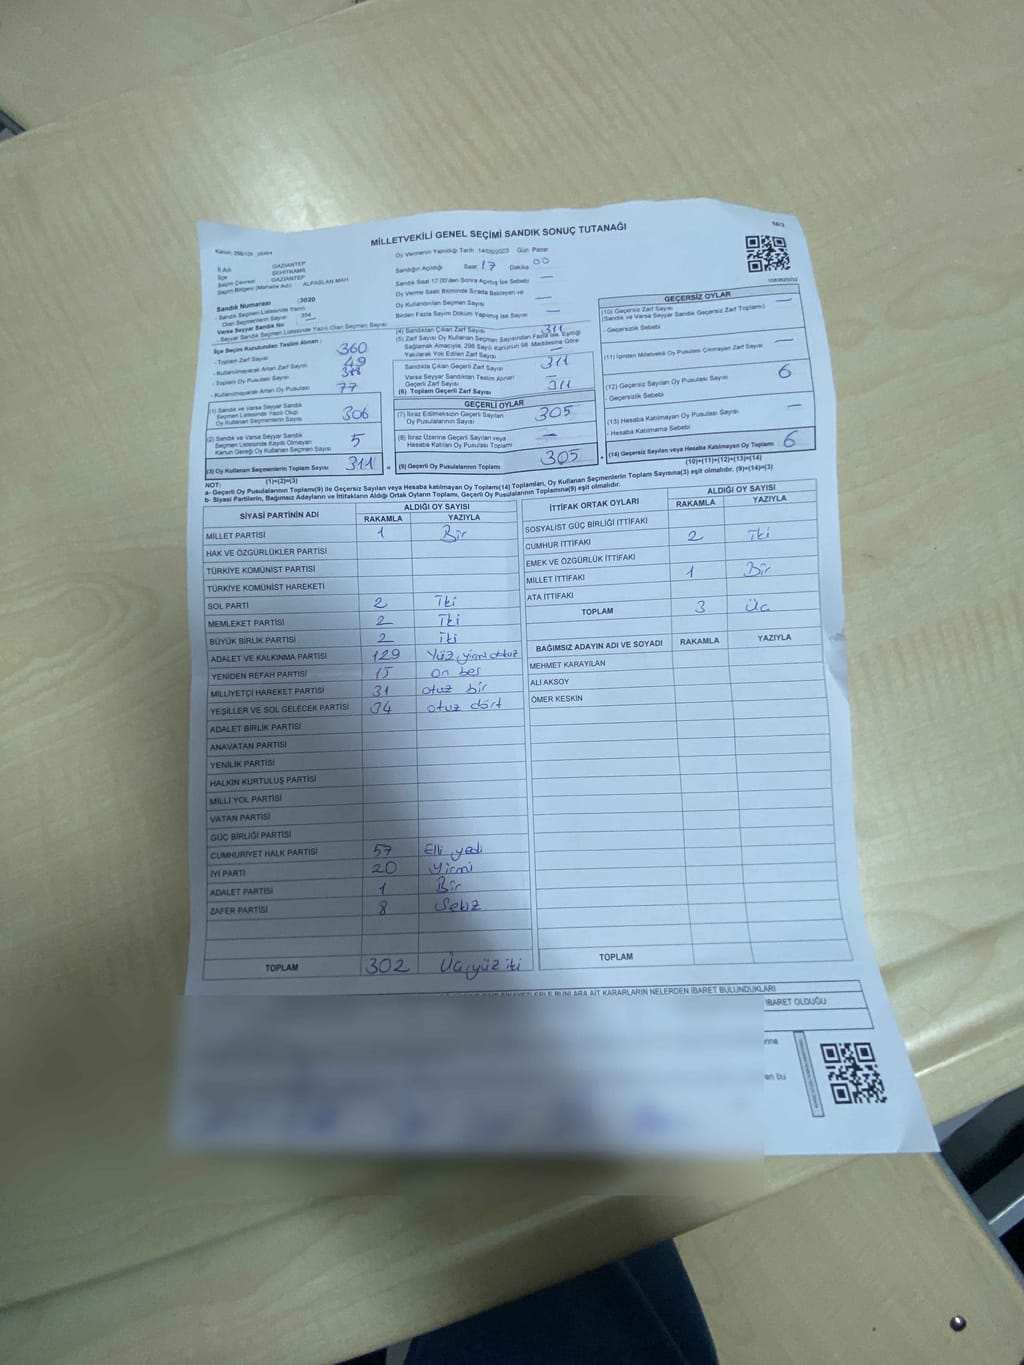 MİLLETVEKİLİ GENEL SEÇİMİ SANDIK SONUÇ TUTANAĞI
İl Adı : GAZİANTEP
İlçe : ŞEHİTKAMİL
Seçim Çevresi : GAZİANTEP
Seçim Bölgesi (Mahalle Adı) : ALPASLAN MAH
Sandık Numarası :3020
- Sandık Seçmen Listesinde Yazılı
Olan Seçmenlerin Sayısı : 354
Varsa Seyyar Sandık No : —
- Seyyar Sandık Seçmen Listesinde Yazılı Olan Seçmen Sayısı
Oy Vermenin Yapıldığı Tarih :14/05/2023 Gün: Pazar
Sandığın Açıldığı Saat :17 Dakika :00
Sandık Saat 17.00'den Sonra Açılmış İse Sebebi : —
Oy Verme Saati Bitiminde Sırada Bekleyen ve
Oy Kullandırılan Seçmen Sayısı : —
Birden Fazla Sayım Döküm Yapılmış İse Sayısı : —
İlçe Seçim Kurulundan Teslim Alınan ;
- Toplam Zarf Sayısı : 360
- Kullanılmayarak Artan Zarf Sayısı : 49
- Toplam Oy Pusulası Sayısı
- Kullanılmayarak Artan Oy Pusulası : 77
(1) Sandık ve Varsa Seyyar Sandık
Seçmen Listesinde Yazılı Olup
Oy Kullanan Seçmenlerin Sayısı 306
(2) Sandık ve Varsa Seyyar Sandık
Seçmen Listesinde Kayıtlı Olmayan
Kanun Gereği Oy Kullanan Seçmen Sayısı 5
(3) Oy Kullanan Seçmenlerin Toplam Sayısı 311
(1)+(2)=(3)
(4) Sandıktan Çıkan Zarf Sayısı : 311
(5) Zarf Sayısı Oy Kullanan Seçmen Sayısından Fazla ise, Eşitliği
Sağlamak Amacıyla, 298 Sayılı Kanunun 98. Maddesine Göre
Yakılarak Yok Edilen Zarf Sayısı : —
Sandıkta Çıkan Geçerli Zarf Sayısı : 311
Varsa Seyyar Sandıktan Teslim Alınan
Geçerli Zarf Sayısı : —
(6) Toplam Geçerli Zarf Sayısı : 311
GEÇERLİ OYLAR
(7) İtiraz Edilmeksizin Geçerli Sayılan
Oy Pusulalarının Sayısı : 305
(8) İtiraz Üzerine Geçerli Sayılan veya
Hesaba Katılan Oy Pusulası Toplamı : —
(9) Geçerli Oy Pusulalarının Toplamı : 305
GEÇERSİZ OYLAR
(10) Geçersiz Zarf Sayısı : —
(Sandık ve Varsa Seyyar Sandık Geçersiz Zarf Toplamı)
- Geçersizlik Sebebi
(11) İçinden Milletvekili Oy Pusulası Çıkmayan Zarf Sayısı : —
(12) Geçersiz Sayılan Oy Pusulası Sayısı : 6
- Geçersizlik Sebebi
(13) Hesaba Katılmayan Oy Pusulası Sayısı : —
- Hesaba Katılmama Sebebi
(14) Geçersiz Sayılan veya Hesaba Katılmayan Oy Toplamı : 6
(10)+(11)+(12)+(13)=(14)
NOT:
a- Geçerli Oy Pusulalarının Toplamı(9) ile Geçersiz Sayılan veya Hesaba katılmayan Oy Toplamı(14) Toplamları, Oy Kullanan Seçmenlerin Toplam Sayısına(3) eşit olmalıdır. (9)+(14)=(3)
b- Siyasi Partilerin, Bağımsız Adayların ve İttifakların Aldığı Ortak Oyların Toplamı, Geçerli Oy Pusulalarının Toplamına(9) eşit olmalıdır.
SİYASİ PARTİNİN ADI ALDIĞI OY SAYISI
RAKAMLA YAZIYLA
MİLLET PARTİSİ 1 Bir
HAK VE ÖZGÜRLÜKLER PARTİSİ
TÜRKİYE KOMÜNİST PARTİSİ
TÜRKİYE KOMÜNİST HAREKETİ
SOL PARTİ 2 İki
MEMLEKET PARTİSİ 2 İki
BÜYÜK BİRLİK PARTİSİ 2 İki
ADALET VE KALKINMA PARTİSİ 129 Yüz yirmi dokuz
YENİDEN REFAH PARTİSİ 15 on beş
MİLLİYETÇİ HAREKET PARTİSİ 31 otuz bir
YEŞİLLER VE SOL GELECEK PARTİSİ 34 otuz dört
ADALET BİRLİK PARTİSİ
ANAVATAN PARTİSİ
YENİLİK PARTİSİ
HALKIN KURTULUŞ PARTİSİ
MİLLİ YOL PARTİSİ
VATAN PARTİSİ
GÜÇ BİRLİĞİ PARTİSİ
CUMHURİYET HALK PARTİSİ 57 Elli yedi
İYİ PARTİ 20 yirmi
ADALET PARTİSİ 1 Bir
ZAFER PARTİSİ 8 Sekiz
TOPLAM 302 Üç yüz iki
İTTİFAK ORTAK OYLARI ALDIĞI OY SAYISI
RAKAMLA YAZIYLA
SOSYALİST GÜÇ BİRLİĞİ İTTİFAKI
CUMHUR İTTİFAKI 2 İki
EMEK VE ÖZGÜRLÜK İTTİFAKI
MİLLET İTTİFAKI 1 Bir
ATA İTTİFAKI
TOPLAM 3 Üç
BAĞIMSIZ ADAYIN ADI VE SOYADI RAKAMLA YAZIYLA
MEHMET KARAYILAN
ALİ AKSOY
ÖMER KESKİN
TOPLAM
BUNLARA AİT KARARLARIN NELERDEN İBARET BULUNDUKLARI
İBARET OLDUĞU
en bu